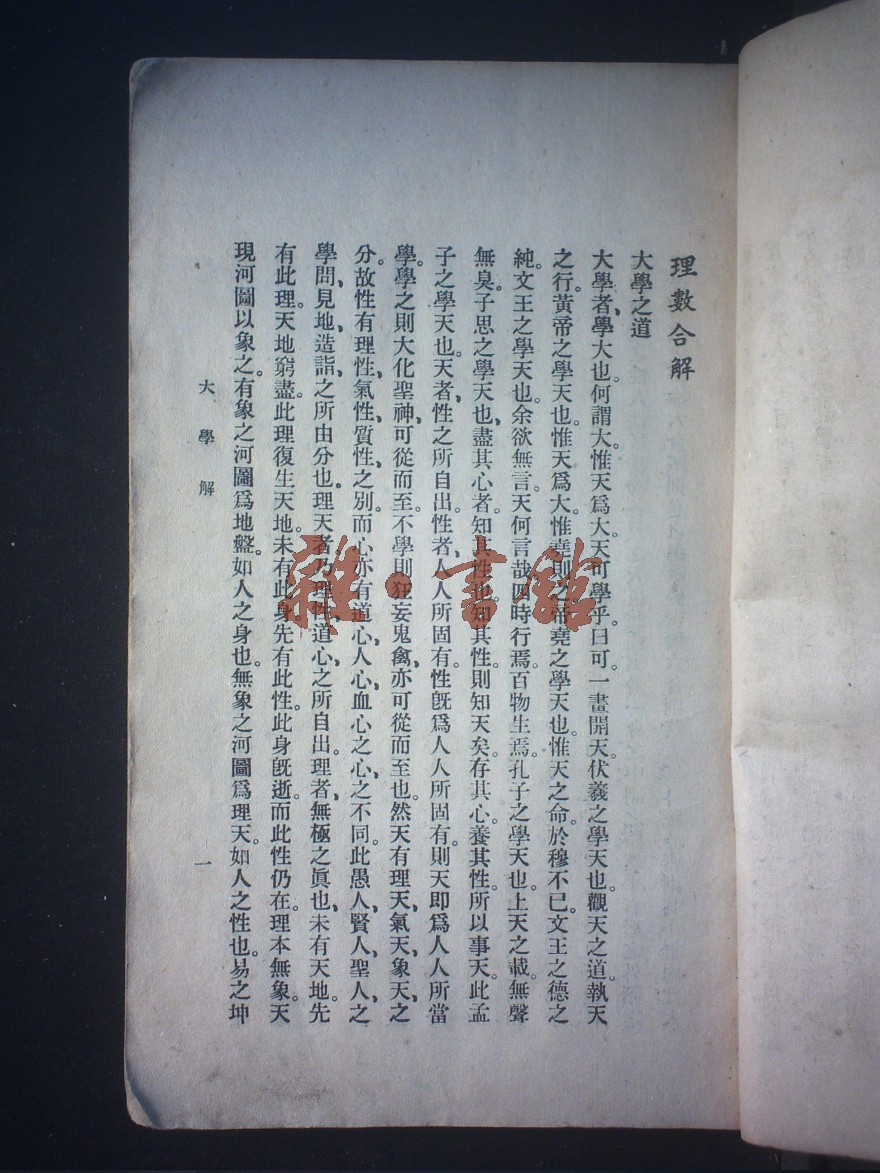 理數合解
大學之道
大學者、學大也。何謂大。惟天爲大。天可學乎。曰可。一畫開天。伏羲之學天也。觀天之道。執天
之行。黃帝之學天也。惟天爲大。惟堯則之。帝堯之學天也。惟天之命。於穆不已。文王之德之
純。文王之學天也。余欲無言。天何言哉。四時行焉。百物生焉。孔子之學天也。上天之載。無聲
無臭。子思之學天也。盡其心者。知其性也。知其性。則知天矣。存其心。養其性。所以事天。此孟
子之學天也。天者、性之所自出。性者、人人所固有。性旣爲人人所固有。則天即爲人人所當
學。學之則大化聖神、可從而至。不學則狂妄鬼禽、亦可從而至也。然天有理天、氣天、象天之
分。故性有理性、氣性、質性、之別。而心亦有道心、人心、血心之心、之不同。此愚人、賢人、聖人、之
學問、見地、造詣、之所由分也。理天者、乃理性、道心、之所自出。理者、無極之眞也、未有天地。先
有此理。天地窮盡。此理復生天地。未有此身。先有此性。此身旣逝。而此性仍在。理本無象。天
現河圖以象之。有象之河圖爲地盤。如人之身也。無象之河圖爲理天。如人之性也。易之坤
大學解
一
雜·書館